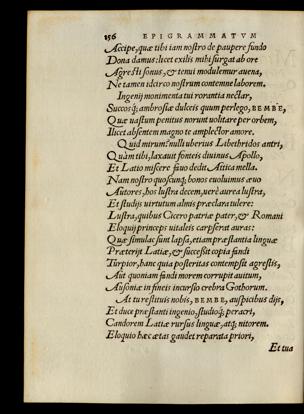 156 EPIGRAMMATVM
Accipe, quæ tibi iam nostro de paupere fundo
Dona damus: licet exilis mihi surgat ab ore
Agrestis sonus, & tenui modulemur auena,
Ne tamen idcirco nostrum contemne laborem.
Ingenij monimenta tui rorantia nectar,
Succosq; ambrosiæ dulceis quum perlego, BEMBE,
Quæ uastum penitus norunt uolitare per orbem,
Ilicet absentem magno te amplector amore.
Quid mirum? nulli uberius Libethridos antri,
Quàm tibi, laxauit fonteis diuinus Apollo,
Et Latio miscere fauo dedit Attica mella.
Nam nostro quoscunq; bonos treuhimus æuo
Autores, hos lustra decem, uerè aurea lustra,
Et studijs uirtutum almis præclara tulere:
Lustra, quibus Cicero patriæ pater, & Romani
Eloquij princeps uitaleis carpserat auras:
Quæ simulac sunt lapsa, etiam præstantia linguæ
Præterijt Latiæ, & successit copia fandi
Turpior, hanc quia posteritas contempsit agrestis,
Aut quoniam fandi morem corrupit auitum,
Ausoniæ in fineis incursio crebra Gothorum.
At tu restituis nobis, BEMBE, auspicibus dijs,
Et duce præstanti ingenio, studioq; peracri,
Candorem Latiæ rursus linguæ, atq; nitorem.
Eloquio hæc ætas gaudet reparata priori,
Et tua